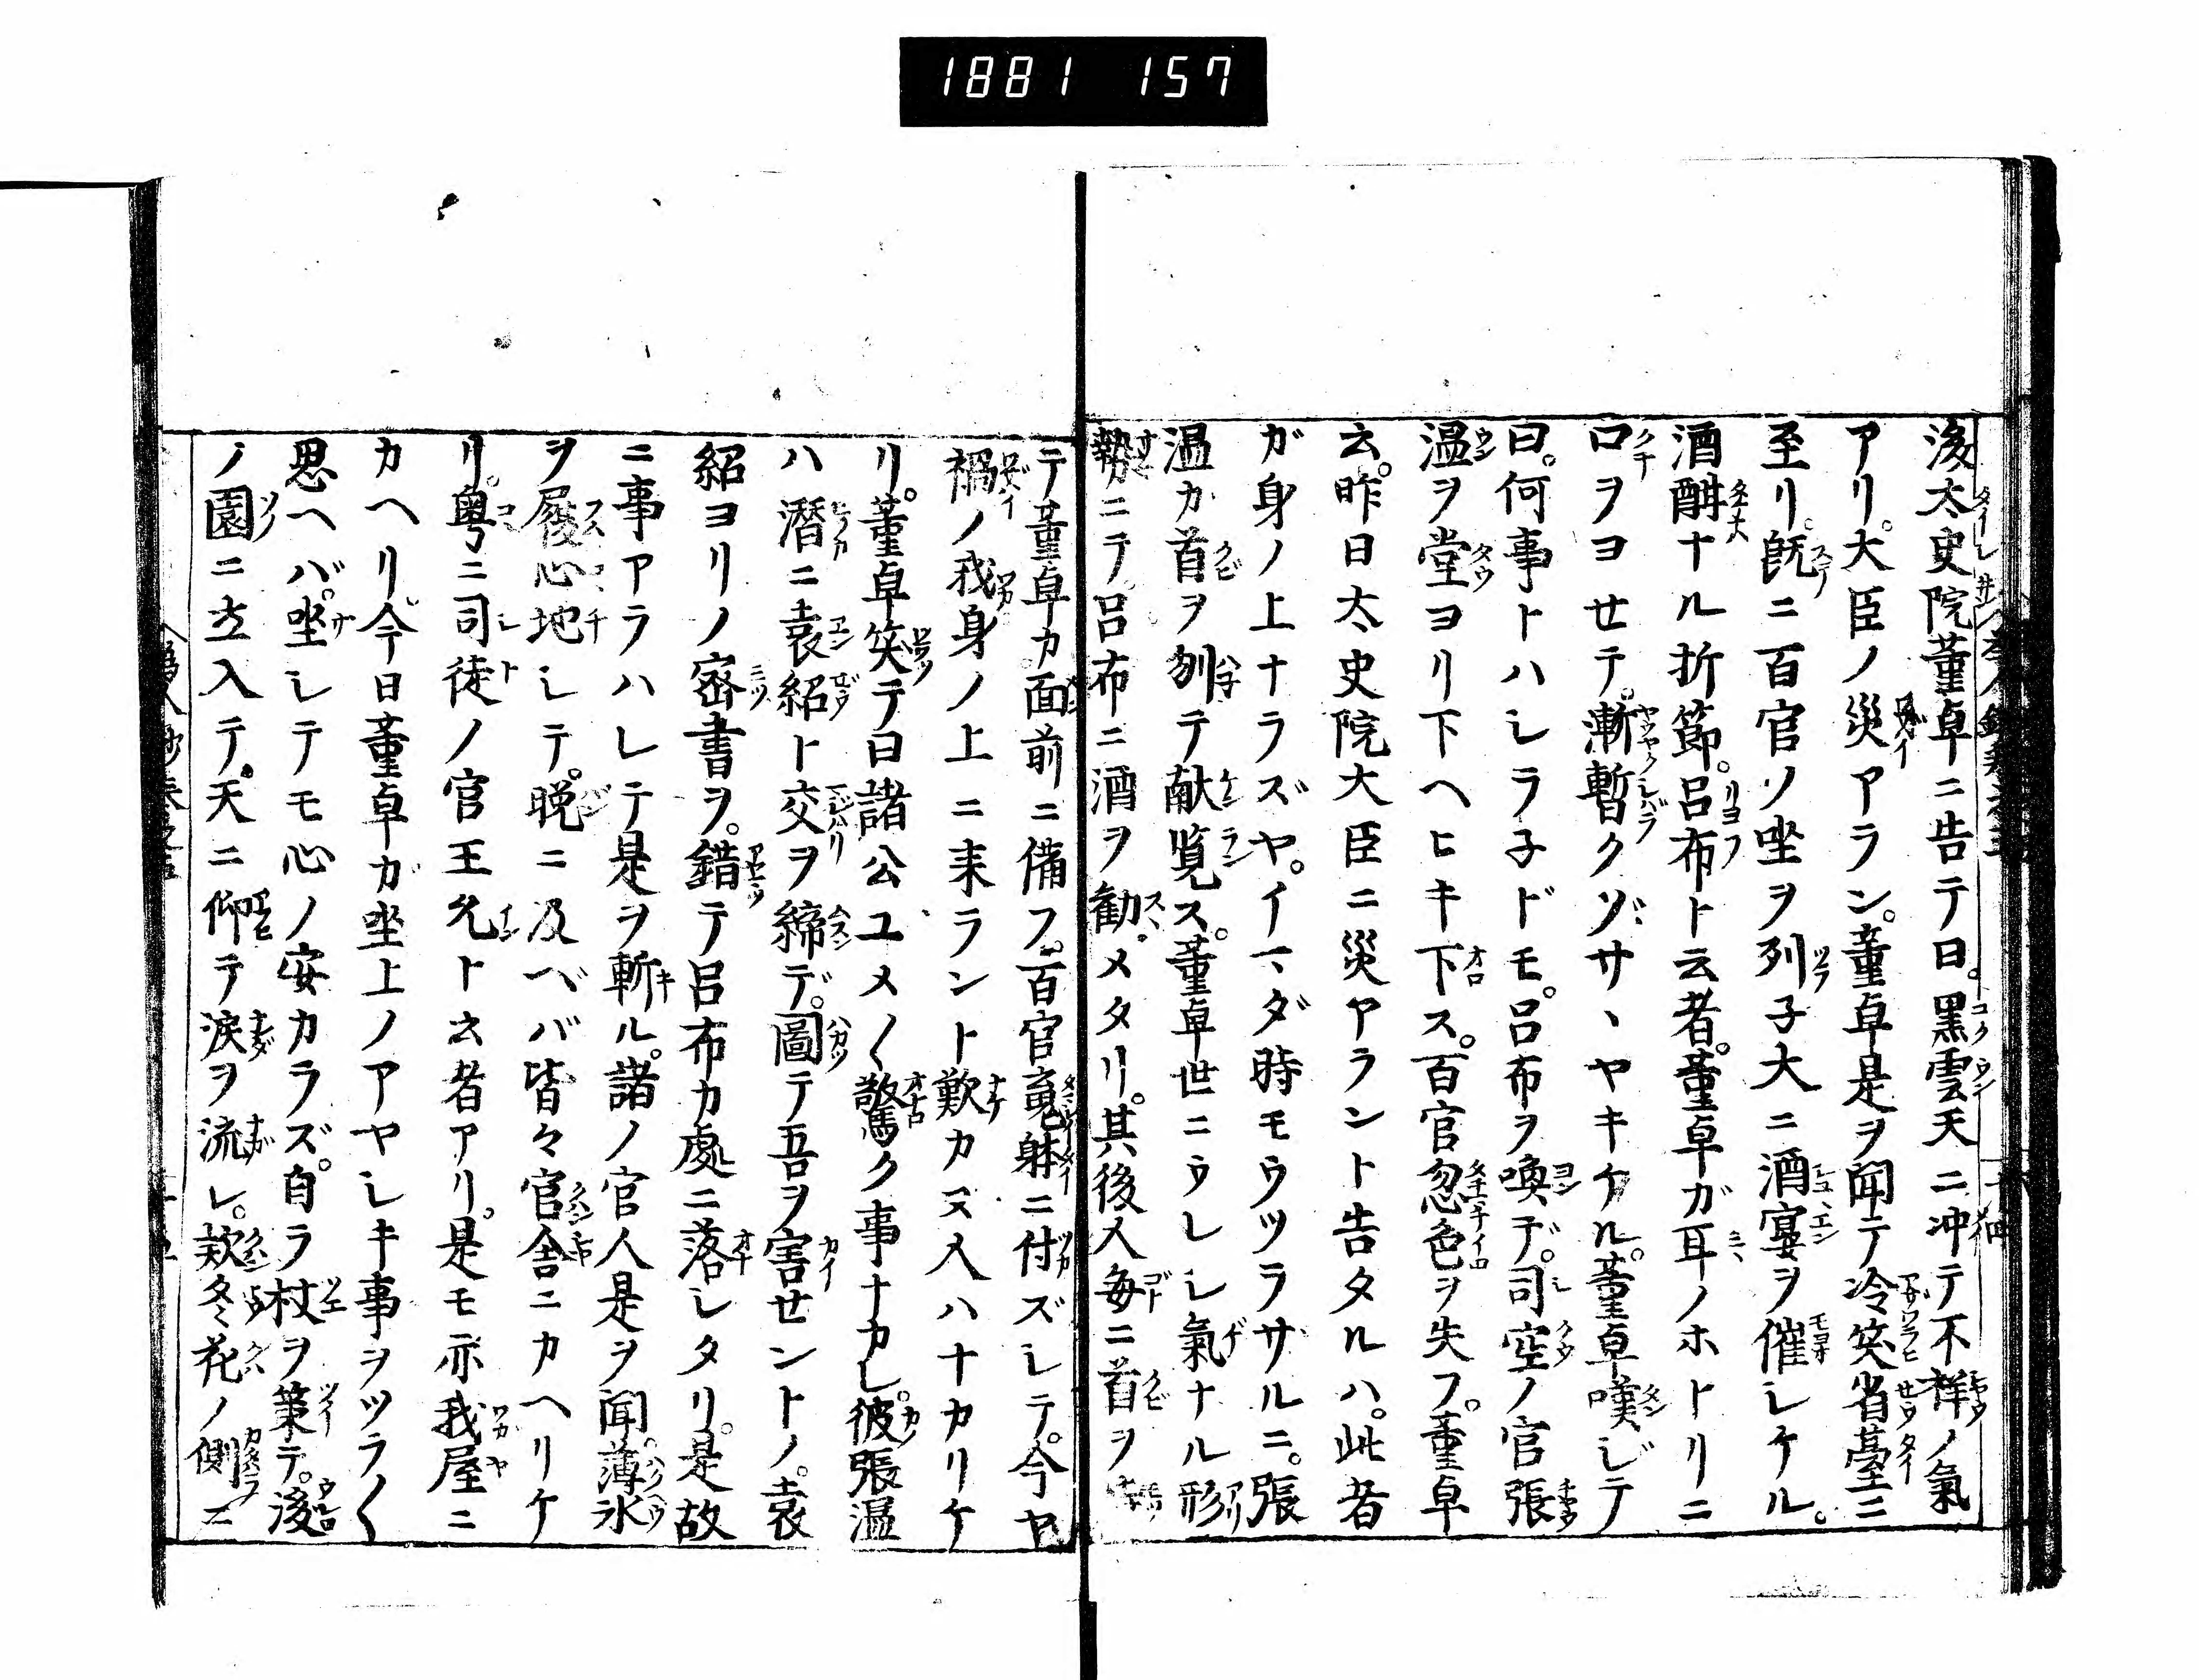 1881 157
後太史院董卓ニ告テ曰。黒雲天ニ冲テ不祥ノ氣
アリ。大臣ノ災アラン。董卓是ヲ聞テ冷笑省臺ニ
至リ。既ニ百官ソ坐ヲ列子大ニ酒宴ヲ催シケル。
酒酣ナル折節。呂布ト云者。董卓ガ耳ノホトリニ
口ヲヨセテ。漸暫クゾサヽヤキケル。董卓嘆ジテ
曰。何事トハシラ子ドモ。呂布ヲ喚デ。司空ノ官張
温ヲ堂ヨリ下ヘヒキ下ス。百官忽色ヲ失フ。董卓
云。昨日太史院大臣ニ災アラント告タルハ。此者
ガ身ノ上ナラズヤ。イマダ時モウツラサルニ。張
温カ首ヲ刎テ献覧ス。董卓世ニウレシ氣ナル形
勢ニテ。呂布ニ酒ヲ勧メタリ。其後人毎ニ首ヲ
テ董卓カ面前ニ備フ。百官魂躰ニ付ズシテ。今ヤ
禍ノ我身ノ上ニ来ラント歎カヌ人ハナカリケ
リ。董卓笑テ曰諸公ユメ〱驚ク事ナカレ。彼張温
ハ潜ニ袁紹ト交ヲ締デ。圖テ吾ヲ害セントノ。袁
紹ヨリノ密書ヲ。錯テ呂布カ處ニ落シタリ。是故
ニ事アラハレテ是ヲ斬ル。諸ノ官人是ヲ聞。薄氷
ヲ履心地シテ。晩ニ及ベバ皆々官舎ニカヘリケ
リ。粤ニ司徒ノ官王允ト云者アリ。是モ亦我屋ニ
カヘリ。今日董卓ガ坐上ノアヤシキ事ヲツラ〱
思ヘバ。坐シテモ心ノ安カラズ。自ラ杖ヲ策テ。後
ノ園ニ立入テ。天ニ仰テ涙ヲ流シ。款冬花ノ側ニ